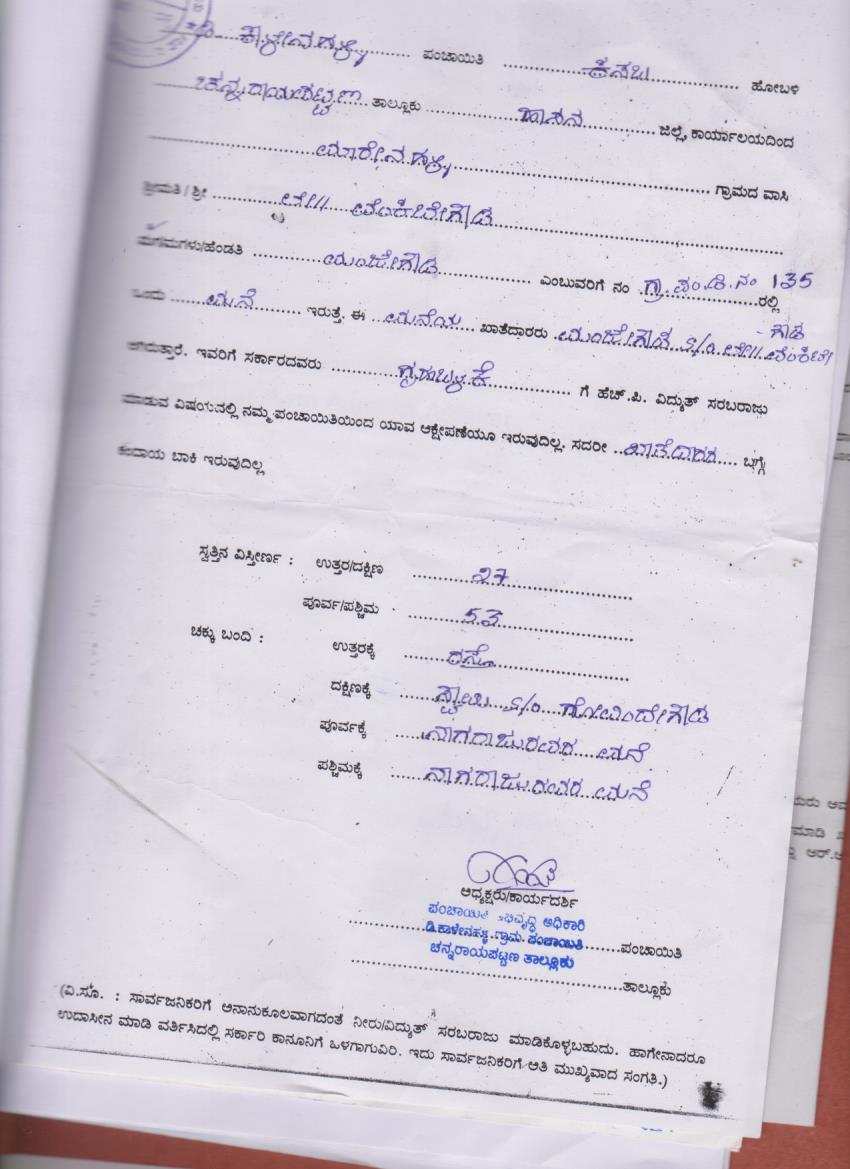 ಡಿ ಕಾಳೇನಹಳ್ಳಿ ಪಂಚಾಯಿತಿ ಕಸಬ ಹೋಬಳಿ
ಚನ್ನರಾಯಪಟ್ಟಣ ತಾಲ್ಲೂಕು ಹಾಸನ ಜಿಲ್ಲೆ, ಕಾರ್ಯಾಲಯದಿಂದ
ಮಾರೇನಹಳ್ಳಿ ಗ್ರಾಮದ ವಾಸಿ
ಶ್ರೀಮತಿ / ಶ್ರೀ ಲೇ|| ವೆಂಕಟೇಗೌಡ
ಮಗ/ಮಗಳು/ಹೆಂಡತಿ ಮಂಜೇಗೌಡ ಎಂಬುವರಿಗೆ ನಂ ಗ್ರಾ.ಪಂ.ಡಿ.ನಂ 135 ರಲ್ಲಿ
ಒಂದು ಮನೆ ಇರುತ್ತೆ. ಈ ಮನೆಯ ಖಾತೆದಾರರು ಮಂಜೇಗೌಡ S/o ಲೇ|| ವೆಂಕಟೇ
-ಗೌಡ
ಆಗಿರುತ್ತಾರೆ. ಇವರಿಗೆ ಸರ್ಕಾರದವರು ಗೃಹಬಳಕೆ ಗೆ ಹೆಚ್.ಪಿ. ವಿದ್ಯುತ್ ಸರಬರಾಜು
ಮಾಡುವ ವಿಷಯದಲ್ಲಿ ನಮ್ಮ ಪಂಚಾಯಿತಿಯಿಂದ ಯಾವ ಆಕ್ಷೇಪಣೆಯೂ ಇರುವುದಿಲ್ಲ. ಸದರೀ ಖಾತೆದಾರರ ಬಗ್ಗೆ
ಕಂದಾಯ ಬಾಕಿ ಇರುವುದಿಲ್ಲ
ಸ್ವತ್ತಿನ ವಿಸ್ತೀರ್ಣ : ಉತ್ತರ/ದಕ್ಷಿಣ 27
ಪೂರ್ವ/ಪಶ್ಚಿಮ 53
ಚಕ್ಕು ಬಂದಿ : ಉತ್ತರಕ್ಕೆ ರಸ್ತೆ
ದಕ್ಷಿಣಕ್ಕೆ ಸ್ವಾಮಿ S/o ಗೋವಿಂದೇಗೌಡ
ಪೂರ್ವಕ್ಕೆ ನಾಗರಾಜುರವರ ಮನೆ
ಪಶ್ಚಿಮಕ್ಕೆ ನಾಗರಾಜುರವರ ಮನೆ
ಅಧ್ಯಕ್ಷರು/ಕಾರ್ಯದರ್ಶಿ
ಪಂಚಾಯಿತಿ ಅಭಿವೃದ್ಧಿ ಅಧಿಕಾರಿ
ಡಿ.ಕಾಳೇನಹಳ್ಳಿ ಗ್ರಾಮ ಪಂಚಾಯಿತಿ ಪಂಚಾಯಿತಿ
ಚನ್ನರಾಯಪಟ್ಟಣ ತಾಲ್ಲೂಕು
ತಾಲ್ಲೂಕು
(ವಿ.ಸೂ. : ಸಾರ್ವಜನಿಕರಿಗೆ ಅನಾನುಕೂಲವಾಗದಂತೆ ನೀರು/ವಿದ್ಯುತ್ ಸರಬರಾಜು ಮಾಡಿಕೊಳ್ಳಬಹುದು. ಹಾಗೇನಾದರೂ
ಉದಾಸೀನ ಮಾಡಿ ವರ್ತಿಸಿದಲ್ಲಿ ಸರ್ಕಾರಿ ಕಾನೂನಿಗೆ ಒಳಗಾಗುವಿರಿ. ಇದು ಸಾರ್ವಜನಿಕರಿಗೆ ಅತಿ ಮುಖ್ಯವಾದ ಸಂಗತಿ.)